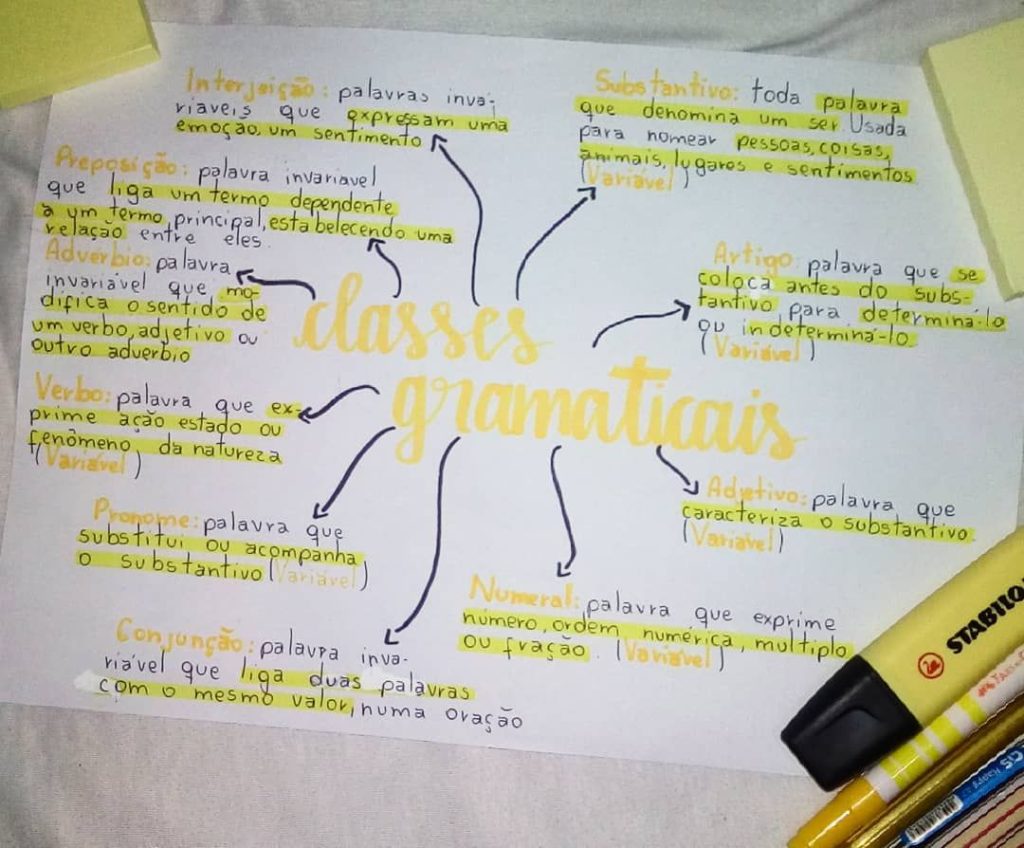 classes
gramaticais
Interjeição: palavras inva-
riaveis que expressam uma
emoção, um sentimento
Substantivo: toda palavra
que denomina um ser. Usada
para nomear pessoas, coisas,
animais, lugares e sentimentos.
(Variável)
Preposição: palavra invariavel
que liga um termo dependente
a um termo principal, estabelecendo uma
relação entre eles.
Advérbio: palavra
invariável que mo-
difica o sentido de
um verbo, adjetivo ou
outro adverbio
Artigo: palavra que se
coloca antes do subs-
tantivo para determiná-lo
ou indeterminá-lo.
(Variável)
Verbo: palavra que ex-
prime ação estado ou
fenômeno da natureza
(Variável)
Adjetivo: palavra que
caracteriza o substantivo.
(Variável)
Pronome: palavra que
substitui ou acompanha
o substantivo (Variável)
Numeral: palavra que exprime
número, ordem numérica, multiplo
ou fração. (Variável)
Conjunção: palavra inva-
riável que liga duas palavras
com o mesmo valor, numa oração
STABILO